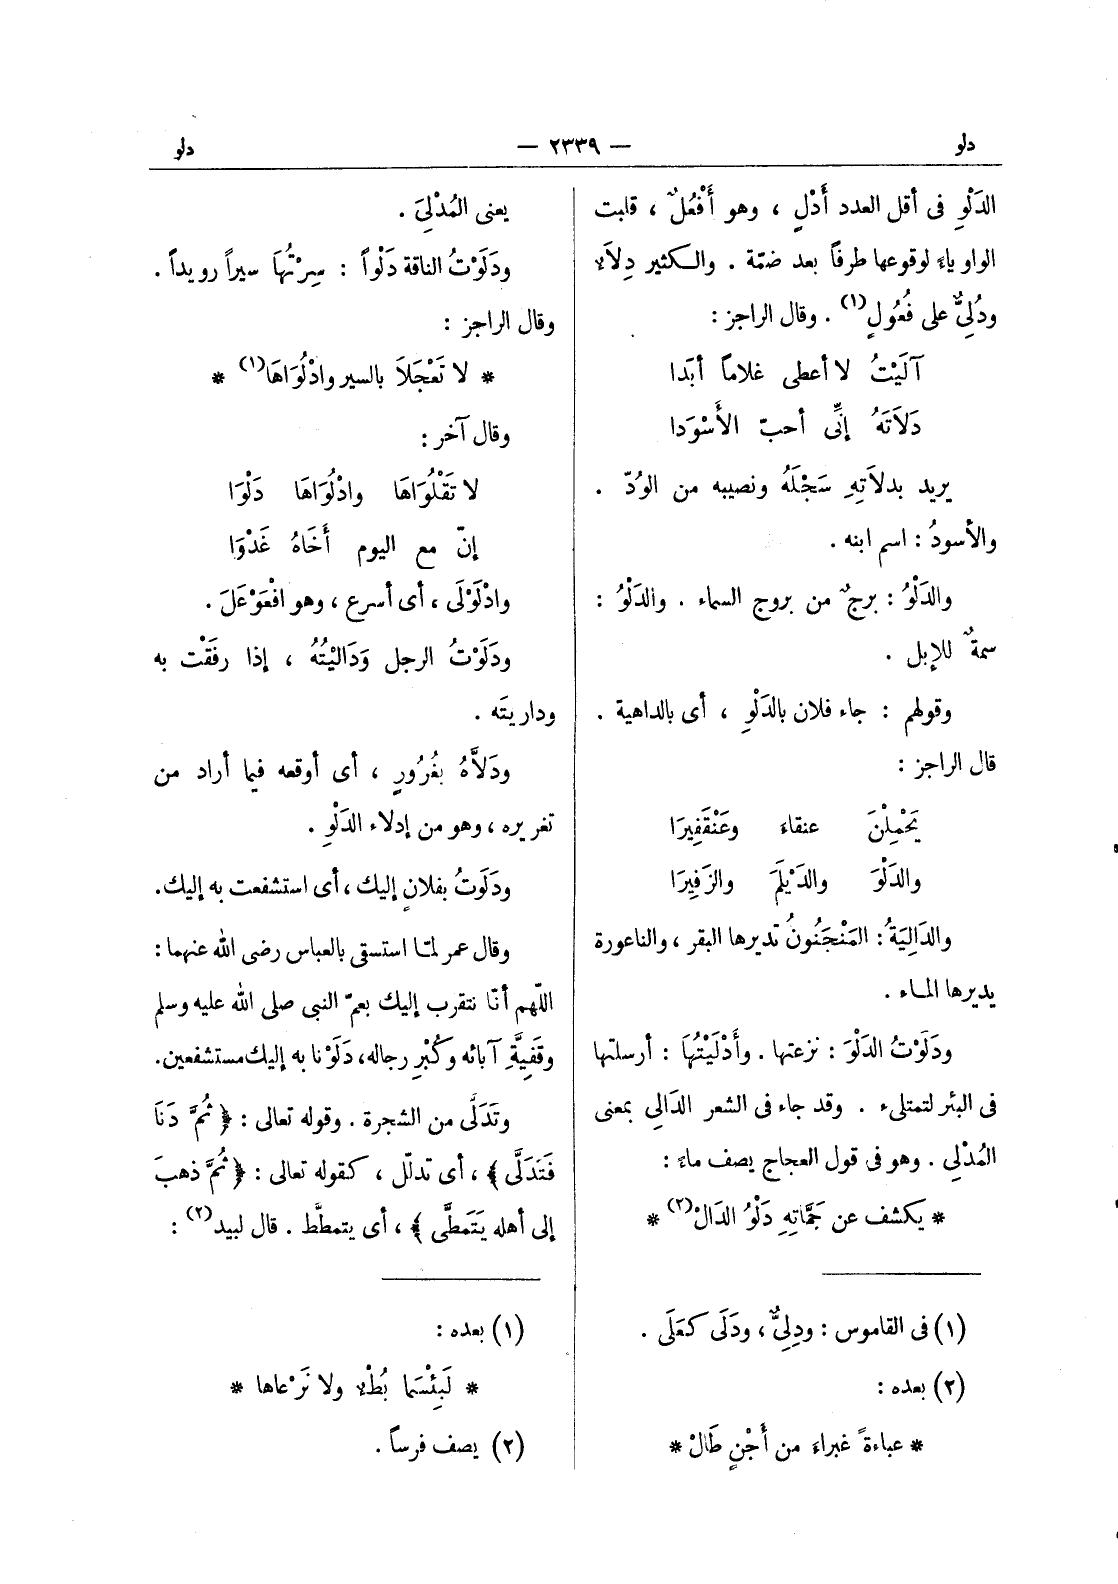 دلو
— ٢٣٣٩ —
دلو
الدَلْوِ فى أقل العدد أَدْلٍ ، وهو أَفْعُلٌ ، قلبت
الواو ياءً لوقوعها طرفاً بعد ضمّة . والكثير دِلاَءٌ
ودُلِىٌّ على فُعُولٍ (١) . وقال الراجز :
آلَيْتُ لا أعطى غلاماً أبَدا
دَلَاتَهُ إنِّى أحبّ الأَسْوَدا
يريد بدلاَتِهِ سَجْلَهُ ونصيبه من الوُدّ .
والأسودُ : اسم ابنه .
والدَلْوُ : برجٌ من بروج السماء . والدَلْوُ :
سمةٌ للإبل .
وقولهم : جاء فلان بالدَلْوِ ، أى بالداهية .
قال الراجز :
يَحْمِلْنَ عنقاءَ وعَنْقَفِيرَا
والدَلْوَ والدَيْلَمَ والزَفِيرَا
والدَالِيَةُ : المَنْجَنُونُ تديرها البقر ، والناعورة
يديرها الماء .
ودَلَوْتُ الدَلْوَ : نزعتها . وأَدْلَيْتُهَا : أرسلتها
فى البئر لتمتلىء . وقد جاء فى الشعر الدَالِي بمعنى
المُدْلِي . وهو فى قول العجاج يصف ماءً :
* يكشف عن جَمَّاتِهِ دَلْوُ الدَالْ (٢) *
(١) فى القاموس : ودِلِىٌّ ، ودَلَى كعَلَى .
(٢) بعده :
* عباءةً غبراءَ من أَجْنٍ طَالْ *
يعنى المُدْلِىَ .
ودَلَوْتُ الناقة دَلْواً : سِرْتُهَا سيراً رويداً .
وقال الراجز :
* لا تَعْجَلاَ بالسير وادْلُوَاهَا (١) *
وقال آخر :
لا تَقْلُوَاهَا وادْلُوَاهَا دَلْوَا
إنّ مع اليوم أَخَاهُ غَدْوَا
وادْلَوْلَى ، أى أسرع ، وهو افْعَوْعَلَ .
ودَلَوْتُ الرجل وَدَالَيْتُهُ ، إذا رفَقْت به
وداريتَه .
ودَلاَّهُ بغُرُورٍ ، أى أوقعه فيما أراد من
تغريره ، وهو من إدلاء الدَلْوِ .
ودَلَوتُ بفلانٍ إليك ، أى استشفعت به إليك.
وقال عمر لمّا استسقى بالعباس رضى الله عنهما :
اللّهم أنّا نتقرب إليك بعمّ النبى صلى الله عليه وسلم
وقَفِيَّةِ آبائه وكُبْرِ رجاله، دَلَوْنا به إليك مستشفعين.
وتَدَلَّى من الشجرة . وقوله تعالى : ﴿ ثُمَّ دَنَا
فَتَدَلَّى ﴾ ، أى تدلّل ، كقوله تعالى : ﴿ ثُمَّ ذهبَ
إلى أهله يَتَمَطَّى ﴾ ، أى يتمطَّط . قال لبيد (٢) :
(١) بعده :
* لَبِئْسَما بُطْءٍ ولا نَرْعاها *
(٢) يصف فرساً .